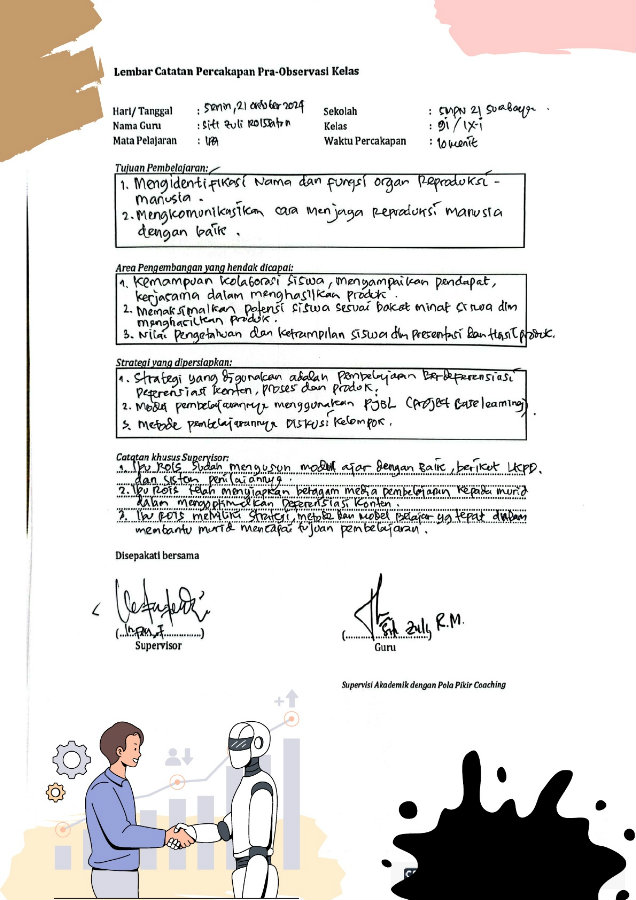 Lembar Catatan Percakapan Pra-Observasi Kelas
Hari/ Tanggal : Senin, 21 Oktober 2024 Sekolah : SMPN 21 Surabaya.
Nama Guru : Siti Zuli Kelas : 9i / IX-i
Mata Pelajaran : IPA Waktu Percakapan : 10 menit
Tujuan Pembelajaran:
1. Mengidentifikasi Nama dan fungsi organ Reproduksi -
manusia.
2. Mengkomunikasikan cara menjaga Reproduksi manusia
dengan baik.
Area Pengembangan yang hendak dicapai:
1. Kemampuan kolaborasi siswa, menyampaikan pendapat,
kerjasama dalam menghasilkan produk.
2. Memaksimalkan potensi siswa sesuai bakat minat siswa dlm
menghasilkan produk.
3. Nilai pengetahuan dan ketrampilan siswa dlm presentasi dan Hasil produk.
Strategi yang dipersiapkan:
1. Strategi yang digunakan adalah pembelajaran Berdeferensiasi
Deferensiasi konten, proses dan produk.
2. Model pembelajarannya menggunakan PJBL (Project Base learning).
3. Metode pembelajarannya DISKUSI Kelompok.
Catatan khusus Supervisor:
1. Ibu Rois sudah menyusun modul ajar dengan Baik, berikut LKPD.
dan sistem penilaiannya.
2. Ibu Rois telah menyiapkan beragam media pembelajaran kepada murid
dalam Deferensiasi konten.
3. Ibu Rois memiliki strategi, metode dan model Belajar yg tepat dalam
membantu murid mencapai tujuan pembelajaran.
Disepakati bersama
Siti Zuli R.M.
Supervisor Guru
Supervisi Akademik dengan Pola Pikir Coaching